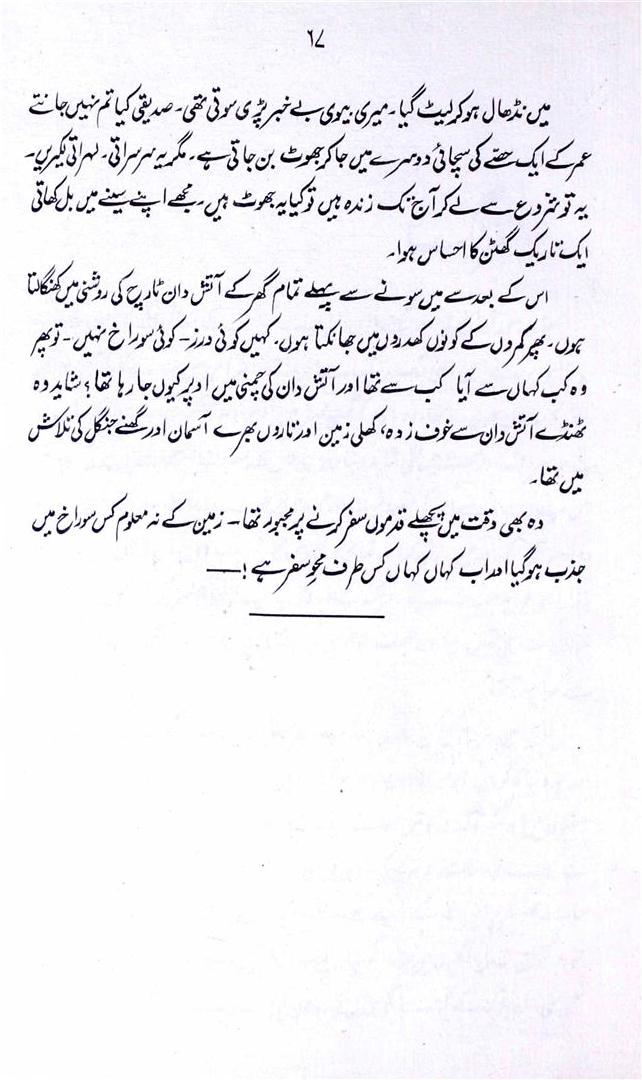 ۶۷
میں نڈھال ہو کر لیٹ گیا۔ میری بیوی بے خبر پڑی سوتی تھی۔ صدیقی کیا تم نہیں جانتے
عمر کے ایک حصّے کی سچائی دوسرے میں جا کر جھوٹ بن جاتی ہے۔ مگر یہ سرسراتی۔ لہراتی لکیریں۔
یہ تو شروع سے لے کر آج تک زندہ ہیں تو کیا یہ جھوٹ ہیں۔ مجھے اپنے سینے میں بل کھاتی
ایک تاریک گھٹن کا احساس ہوا۔
اس کے بعد سے میں سونے سے پہلے تمام گھر کے آتش دان ٹارچ کی روشنی میں کھنگالتا
ہوں۔ پھر کمروں کے کونوں کھدروں میں جھانکتا ہوں۔ کہیں کوئی درز۔ کوئی سوراخ نہیں۔ تو پھر
وہ کب کہاں سے آیا کب سے تھا اور آتش دان کی چمنی میں اوپر کیوں جا رہا تھا؟ شاید وہ
ٹھنڈے آتش دان سے خوف زدہ، کھلی زمین اور تاروں بھرے آسمان اور گھنے جنگل کی تلاش
میں تھا۔
وہ بھی وقت میں پچھلے قدموں سفر کرنے پر مجبور تھا۔ زمین کے نہ معلوم کس سوراخ میں
جذب ہو گیا اور اب کہاں کہاں کس طرف محوِ سفر ہے!—